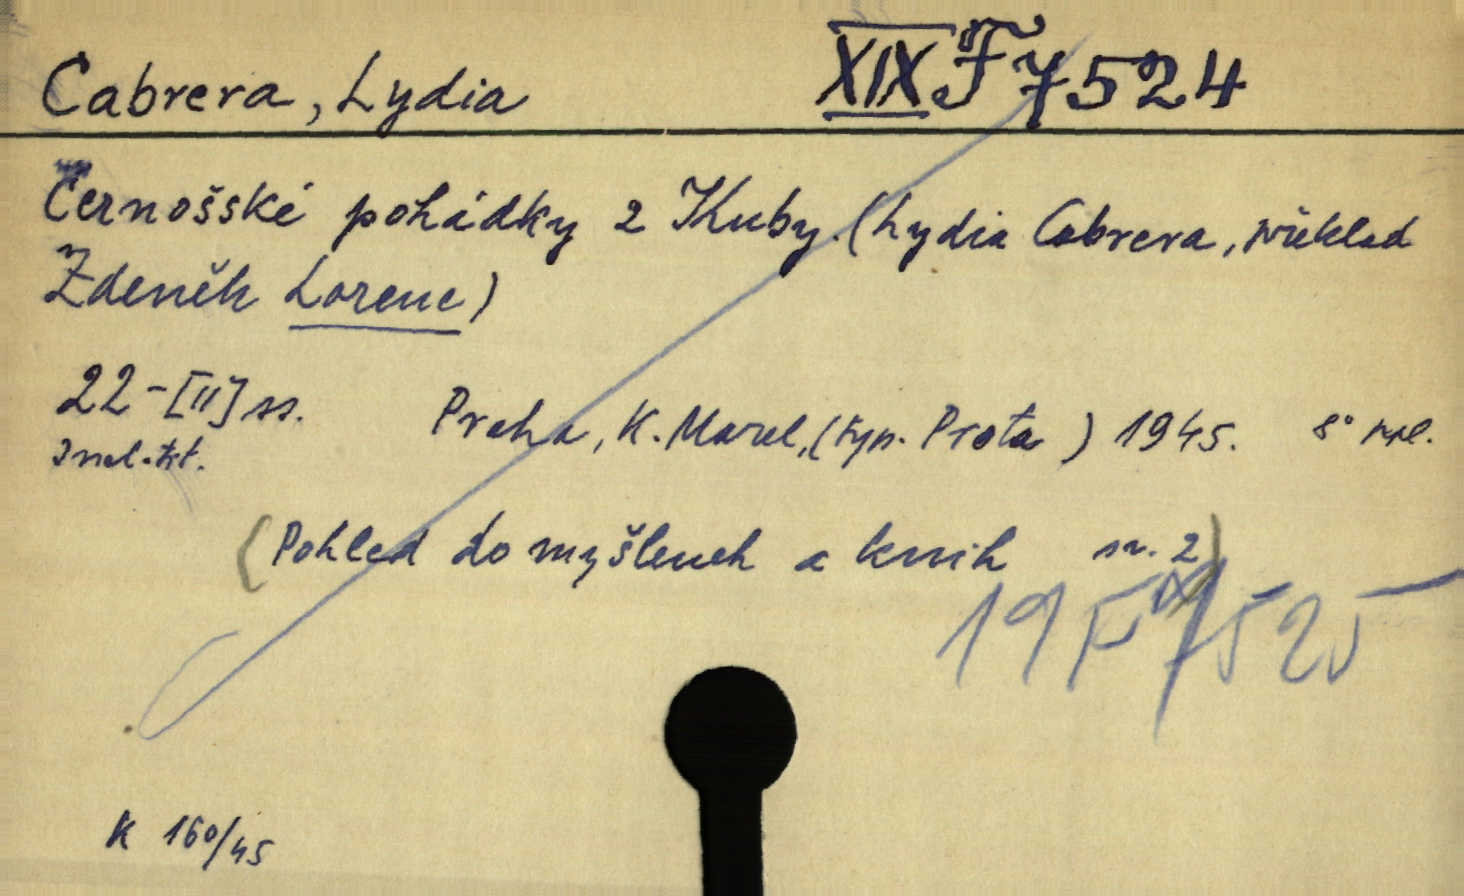 Cabrera, Lydia XIX F 7524
Černošské pohádky z Kuby. (Lydia Cabrera, překlad
Zdeněk Lorenc)
22-[II] ss.
Praha, K. Marel, (typ. Prota) 1945. 8°
(Pohled do myšlenek a knih sv. 2)
19 F 7525
K 160/45